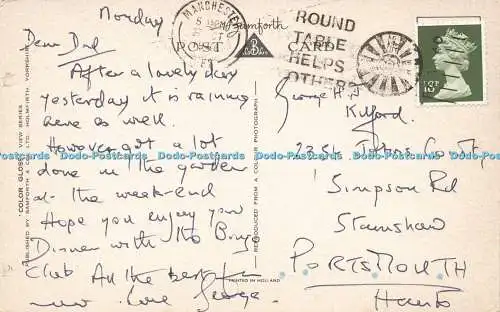 Monday
Dear Dad
After a lovely day
yesterday it is raining
here as well.
However got a lot
done in the garden
at the week-end
Hope you enjoy your
Dinner with the
Club All the best
now. Love George.
MANCHESTER
Bamforth
POST CARD
ROUND
TABLE
HELPS
OTHERS
"COLOR GLOSS" VIEW SERIES
PUBLISHED BY BAMFORTH & CO. LTD. HOLMFIRTH, YORKSHIRE
REPRODUCED FROM A COLOUR PHOTOGRAPH
PRINTED IN HOLLAND
George H.
Kilford
Simpson Rd
Stamshaw
PORTSMOUTH
Hants
Dodo-Postcards Dodo-Postcards Dodo-Postcards Dodo-Postcards Dodo-Postcards